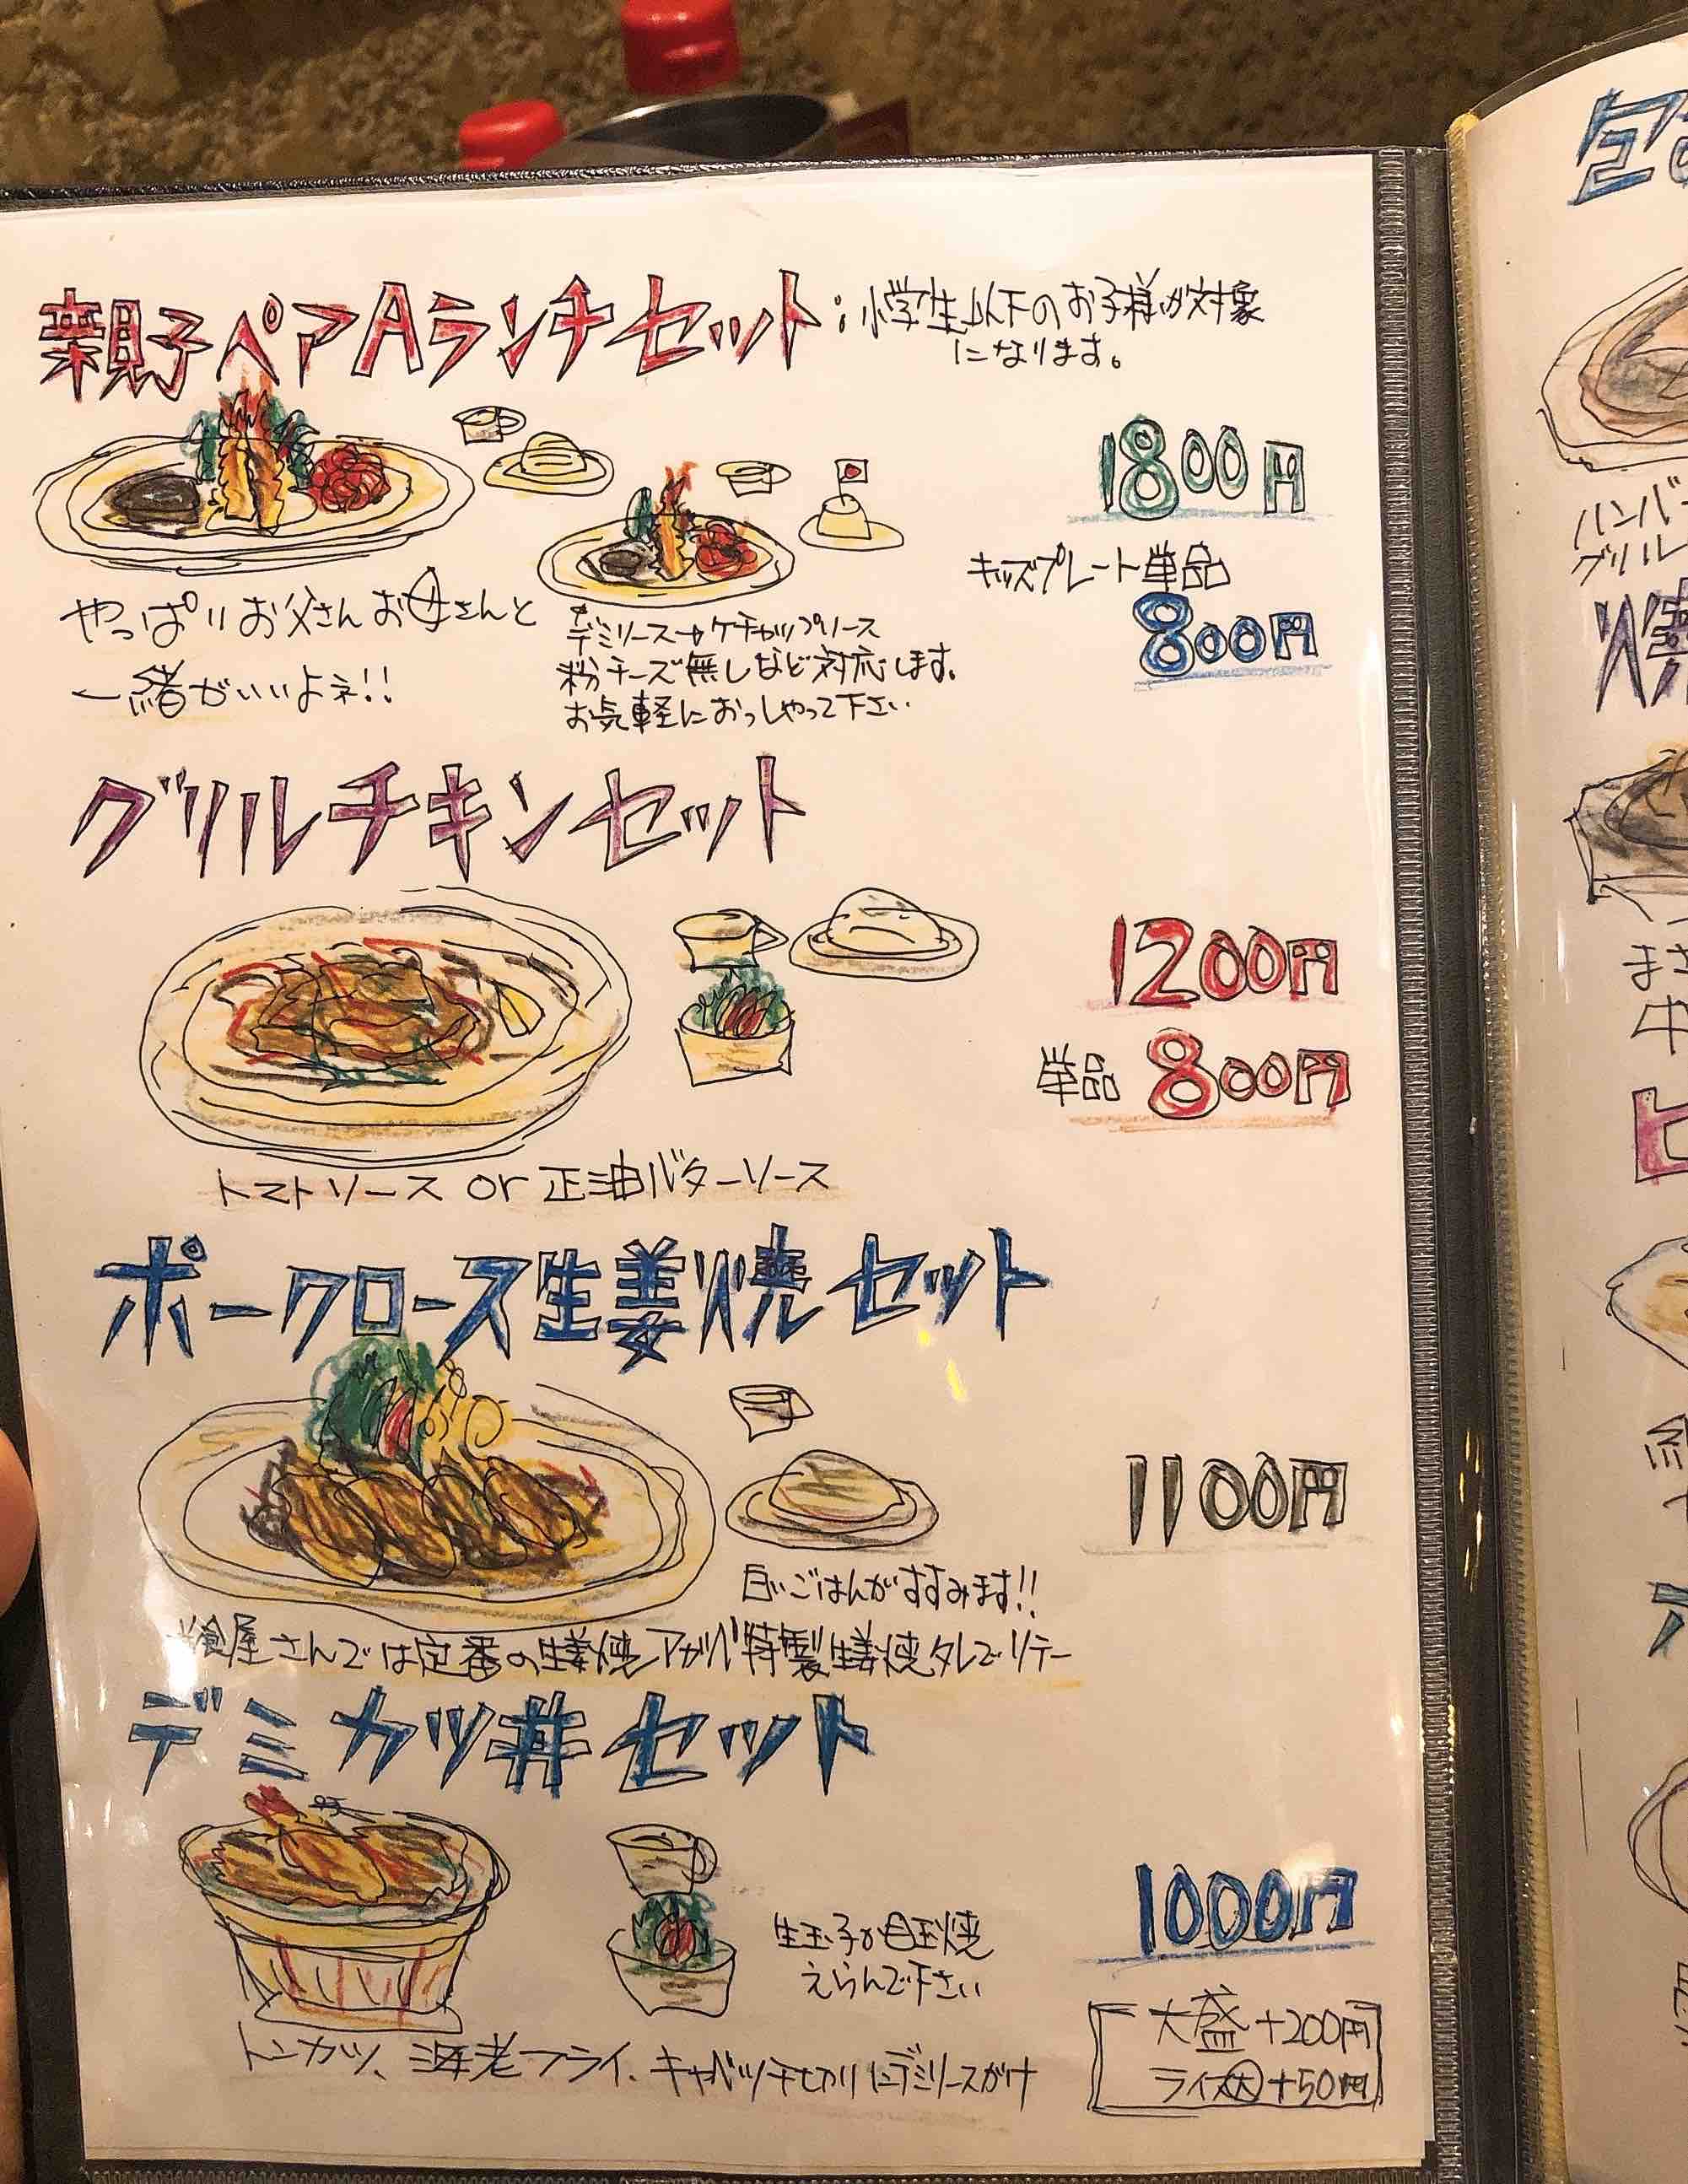 親子ペアAランチセット:小学生以下のお子様が対象
になります。
1800円
キッズプレート単品
800円
やっぱりお父さんお母さんと
一緒がいいよネ!!
デミソース→ケチャップソース
粉チーズ無しなど対応します。
お気軽におっしゃって下さい
グリルチキンセット
1200円
単品 800円
トマトソース or 正油バターソース
ポークロース生姜焼セット
1100円
白いごはんがすすみます!!
洋食屋さんでは定番の生姜焼 特製生姜焼タレでソテー
デミカツ丼セット
1000円
生玉子か目玉焼
えらんで下さい
大盛+200円
ライス大+50円
トンカツ、海老フライ、キャベツ千切りにデミソースがけ
ハンバー
グリル